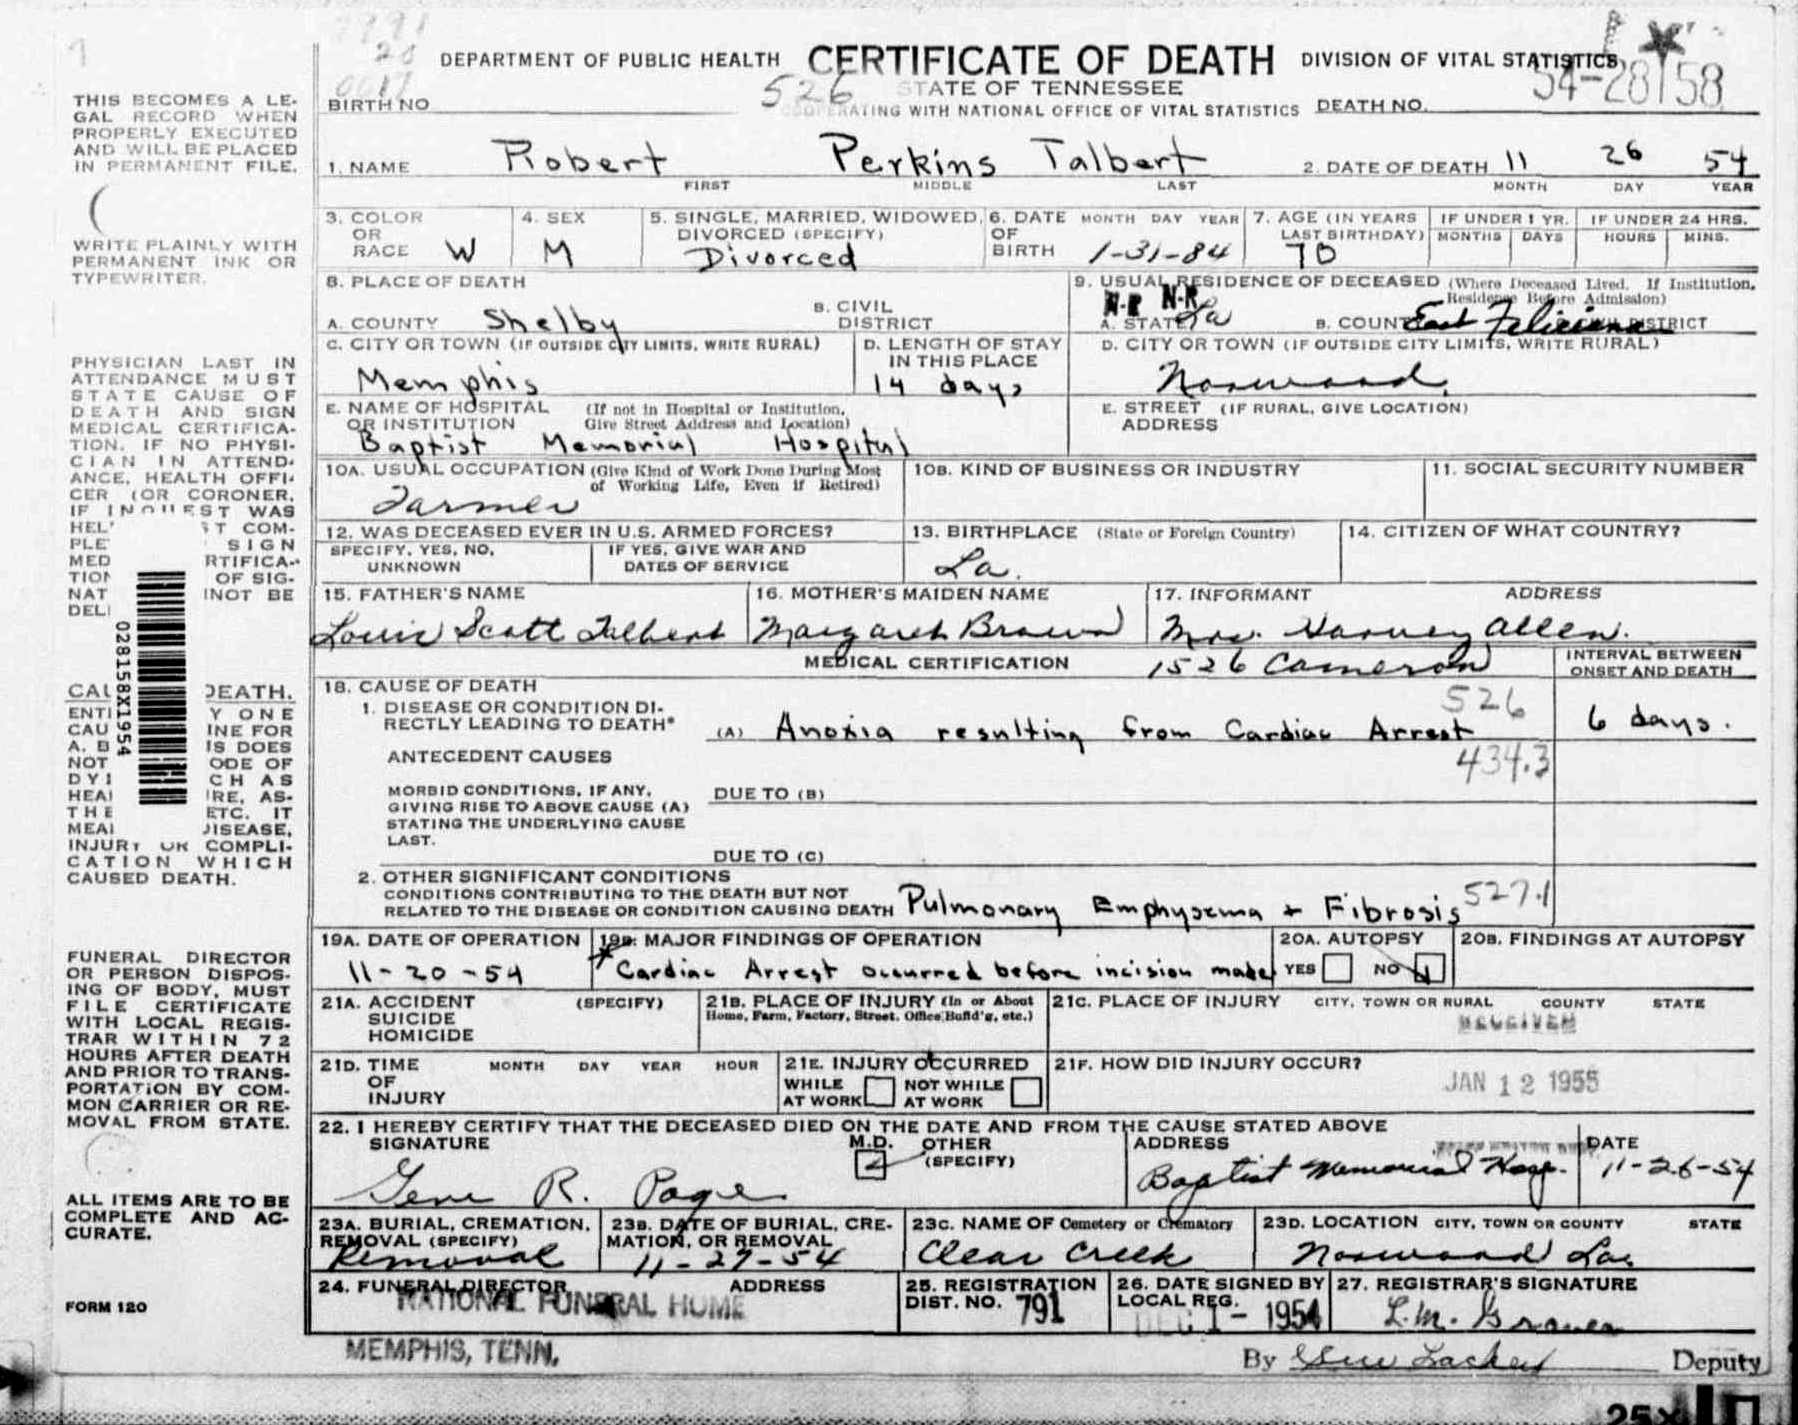 7791
20
0017
DEPARTMENT OF PUBLIC HEALTH CERTIFICATE OF DEATH DIVISION OF VITAL STATISTICS
STATE OF TENNESSEE 54-28158
BIRTH NO 526 COOPERATING WITH NATIONAL OFFICE OF VITAL STATISTICS DEATH NO.
1. NAME Robert Perkins Talbert 2. DATE OF DEATH 11 26 54
FIRST MIDDLE LAST MONTH DAY YEAR
3. COLOR OR RACE W
4. SEX M
5. SINGLE, MARRIED, WIDOWED, DIVORCED (SPECIFY) Divorced
6. DATE OF BIRTH MONTH DAY YEAR 1-31-84
7. AGE (IN YEARS LAST BIRTHDAY) 70
IF UNDER 1 YR. MONTHS DAYS
IF UNDER 24 HRS. HOURS MINS.
8. PLACE OF DEATH
A. COUNTY Shelby
B. CIVIL DISTRICT
9. USUAL RESIDENCE OF DECEASED (Where Deceased Lived. If Institution, Residence Before Admission)
N-R N-R
A. STATE La B. COUNTY East Feliciana DISTRICT
C. CITY OR TOWN (IF OUTSIDE CITY LIMITS, WRITE RURAL)
Memphis
D. LENGTH OF STAY IN THIS PLACE
14 days
D. CITY OR TOWN (IF OUTSIDE CITY LIMITS, WRITE RURAL)
Norwood
E. NAME OF HOSPITAL OR INSTITUTION (If not in Hospital or Institution, Give Street Address and Location)
Baptist Memorial Hospital
E. STREET ADDRESS (IF RURAL, GIVE LOCATION)
10A. USUAL OCCUPATION (Give Kind of Work Done During Most of Working Life, Even if Retired)
Farmer
10B. KIND OF BUSINESS OR INDUSTRY
11. SOCIAL SECURITY NUMBER
12. WAS DECEASED EVER IN U.S. ARMED FORCES?
SPECIFY, YES, NO, UNKNOWN
IF YES, GIVE WAR AND DATES OF SERVICE
13. BIRTHPLACE (State or Foreign Country)
La.
14. CITIZEN OF WHAT COUNTRY?
15. FATHER'S NAME
Louis Scott Talbert
16. MOTHER'S MAIDEN NAME
Margaret Brown
17. INFORMANT ADDRESS
Mrs. Harvey Allen.
1526 Cameron
MEDICAL CERTIFICATION
INTERVAL BETWEEN ONSET AND DEATH
18. CAUSE OF DEATH
1. DISEASE OR CONDITION DIRECTLY LEADING TO DEATH* 526
(A) Anoxia resulting from Cardiac Arrest 6 days.
434.3
ANTECEDENT CAUSES
MORBID CONDITIONS, IF ANY, GIVING RISE TO ABOVE CAUSE (A) STATING THE UNDERLYING CAUSE LAST.
DUE TO (B)
DUE TO (C)
2. OTHER SIGNIFICANT CONDITIONS
CONDITIONS CONTRIBUTING TO THE DEATH BUT NOT
RELATED TO THE DISEASE OR CONDITION CAUSING DEATH Pulmonary Emphysema + Fibrosis 527.1
19A. DATE OF OPERATION
11-20-54
19B. MAJOR FINDINGS OF OPERATION
* Cardiac Arrest occurred before incision made
20A. AUTOPSY
YES NO
20B. FINDINGS AT AUTOPSY
21A. ACCIDENT SUICIDE HOMICIDE (SPECIFY)
21B. PLACE OF INJURY (In or About Home, Farm, Factory, Street, Office Build'g, etc.)
21C. PLACE OF INJURY CITY, TOWN OR RURAL COUNTY STATE
RECEIVED
21D. TIME OF INJURY MONTH DAY YEAR HOUR
21E. INJURY OCCURRED
WHILE AT WORK NOT WHILE AT WORK
21F. HOW DID INJURY OCCUR?
JAN 12 1955
22. I HEREBY CERTIFY THAT THE DECEASED DIED ON THE DATE AND FROM THE CAUSE STATED ABOVE
SIGNATURE M.D. OTHER (SPECIFY) ADDRESS DATE
Gene R. Page Baptist Memorial Hosp. 11-26-54
23A. BURIAL, CREMATION, REMOVAL (SPECIFY)
Removal
23B. DATE OF BURIAL, CREMATION, OR REMOVAL
11-27-54
23C. NAME OF Cemetery or Crematory
Clear Creek
23D. LOCATION CITY, TOWN OR COUNTY STATE
Norwood La.
24. FUNERAL DIRECTOR ADDRESS
NATIONAL FUNERAL HOME
MEMPHIS, TENN.
25. REGISTRATION DIST. NO. 791
26. DATE SIGNED BY LOCAL REG.
DEC 1 - 1954
27. REGISTRAR'S SIGNATURE
L. M. Graves
By Deputy
THIS BECOMES A LE-
GAL RECORD WHEN
PROPERLY EXECUTED
AND WILL BE PLACED
IN PERMANENT FILE.
WRITE PLAINLY WITH
PERMANENT INK OR
TYPEWRITER.
PHYSICIAN LAST IN
ATTENDANCE MUST
STATE CAUSE OF
DEATH AND SIGN
MEDICAL CERTIFICA-
TION. IF NO PHYSI-
CIAN IN ATTEND-
ANCE, HEALTH OFFI-
CER (OR CORONER,
IF INQUEST WAS
HEL T COM-
PLE SIGN
MED RTIFICA-
TION OF SIG-
NAT NNOT BE
DEL
028158X1954
CAU DEATH.
ENT Y ONE
CAU INE FOR
A. B IS DOES
NOT ODE OF
DYI CH AS
HEA RE, AS-
THE ETC. IT
MEA DISEASE,
INJURY OR COMPLI-
CATION WHICH
CAUSED DEATH.
FUNERAL DIRECTOR
OR PERSON DISPOS-
ING OF BODY, MUST
FILE CERTIFICATE
WITH LOCAL REGIS-
TRAR WITHIN 72
HOURS AFTER DEATH
AND PRIOR TO TRANS-
PORTATION BY COM-
MON CARRIER OR RE-
MOVAL FROM STATE.
ALL ITEMS ARE TO BE
COMPLETE AND AC-
CURATE.
FORM 120
25X